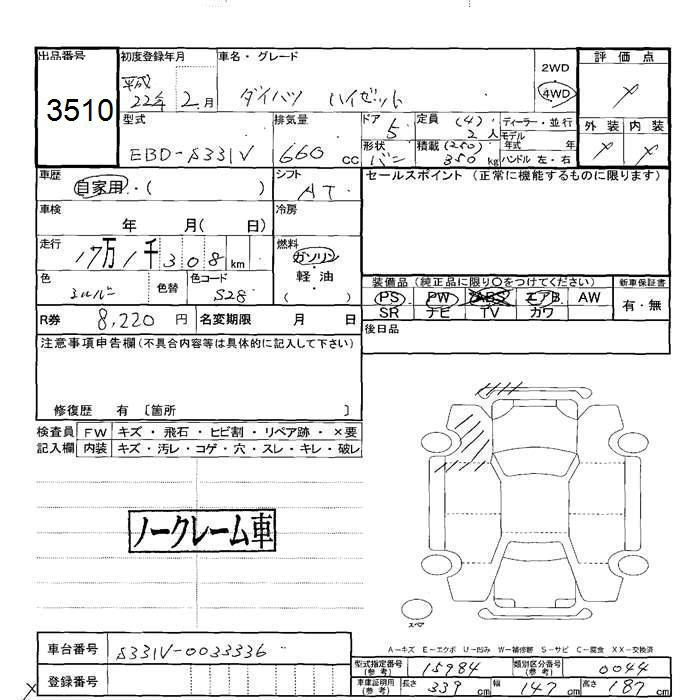 出品番号
3510
初度登録年月
平成
22年 2月
車名・グレード
ダイハツ ハイゼット
2WD
4WD
評価点
×
外装 内装
× ×
型式
EBD-S331V
排気量
660 cc
ドア
5
形状
バン
定員 (4)
2 人
積載 (250)
350 kg
ディーラー・並行
モデル
年式 年
ハンドル 左・右
車歴
自家用・( )
シフト
AT
セールスポイント (正常に機能するものに限ります)
車検
年 月( 日)
冷房
走行
17万1千308 km
燃料
ガソリン
軽・油
( )
色
シルバー
色替
色コード
S28
装備品 (純正品に限り○をつけてください)
PS PW ABS エアB AW
SR ナビ TV カワ
新車保証書
有・無
R券 8,220 円 名変期限 月 日
後日品
注意事項申告欄(不具合内容等は具体的に記入して下さい)
修復歴 有 〔箇所 〕
検査員 FW キズ・飛石・ヒビ割・リペア跡・×要
記入欄 内装 キズ・汚レ・コゲ・穴・スレ・キレ・破レ
ノークレーム車
スペア
A-キズ E-エクボ U-凹み W-補修跡 S-サビ C-腐食 XX-交換済
車台番号 S331V-0033336
登録番号
型式指定番号
(参考)
15984
類別区分番号
(参考)
0044
車庫証明用
(参考)
長さ 339 cm 幅 147 cm 高さ 187 cm
×